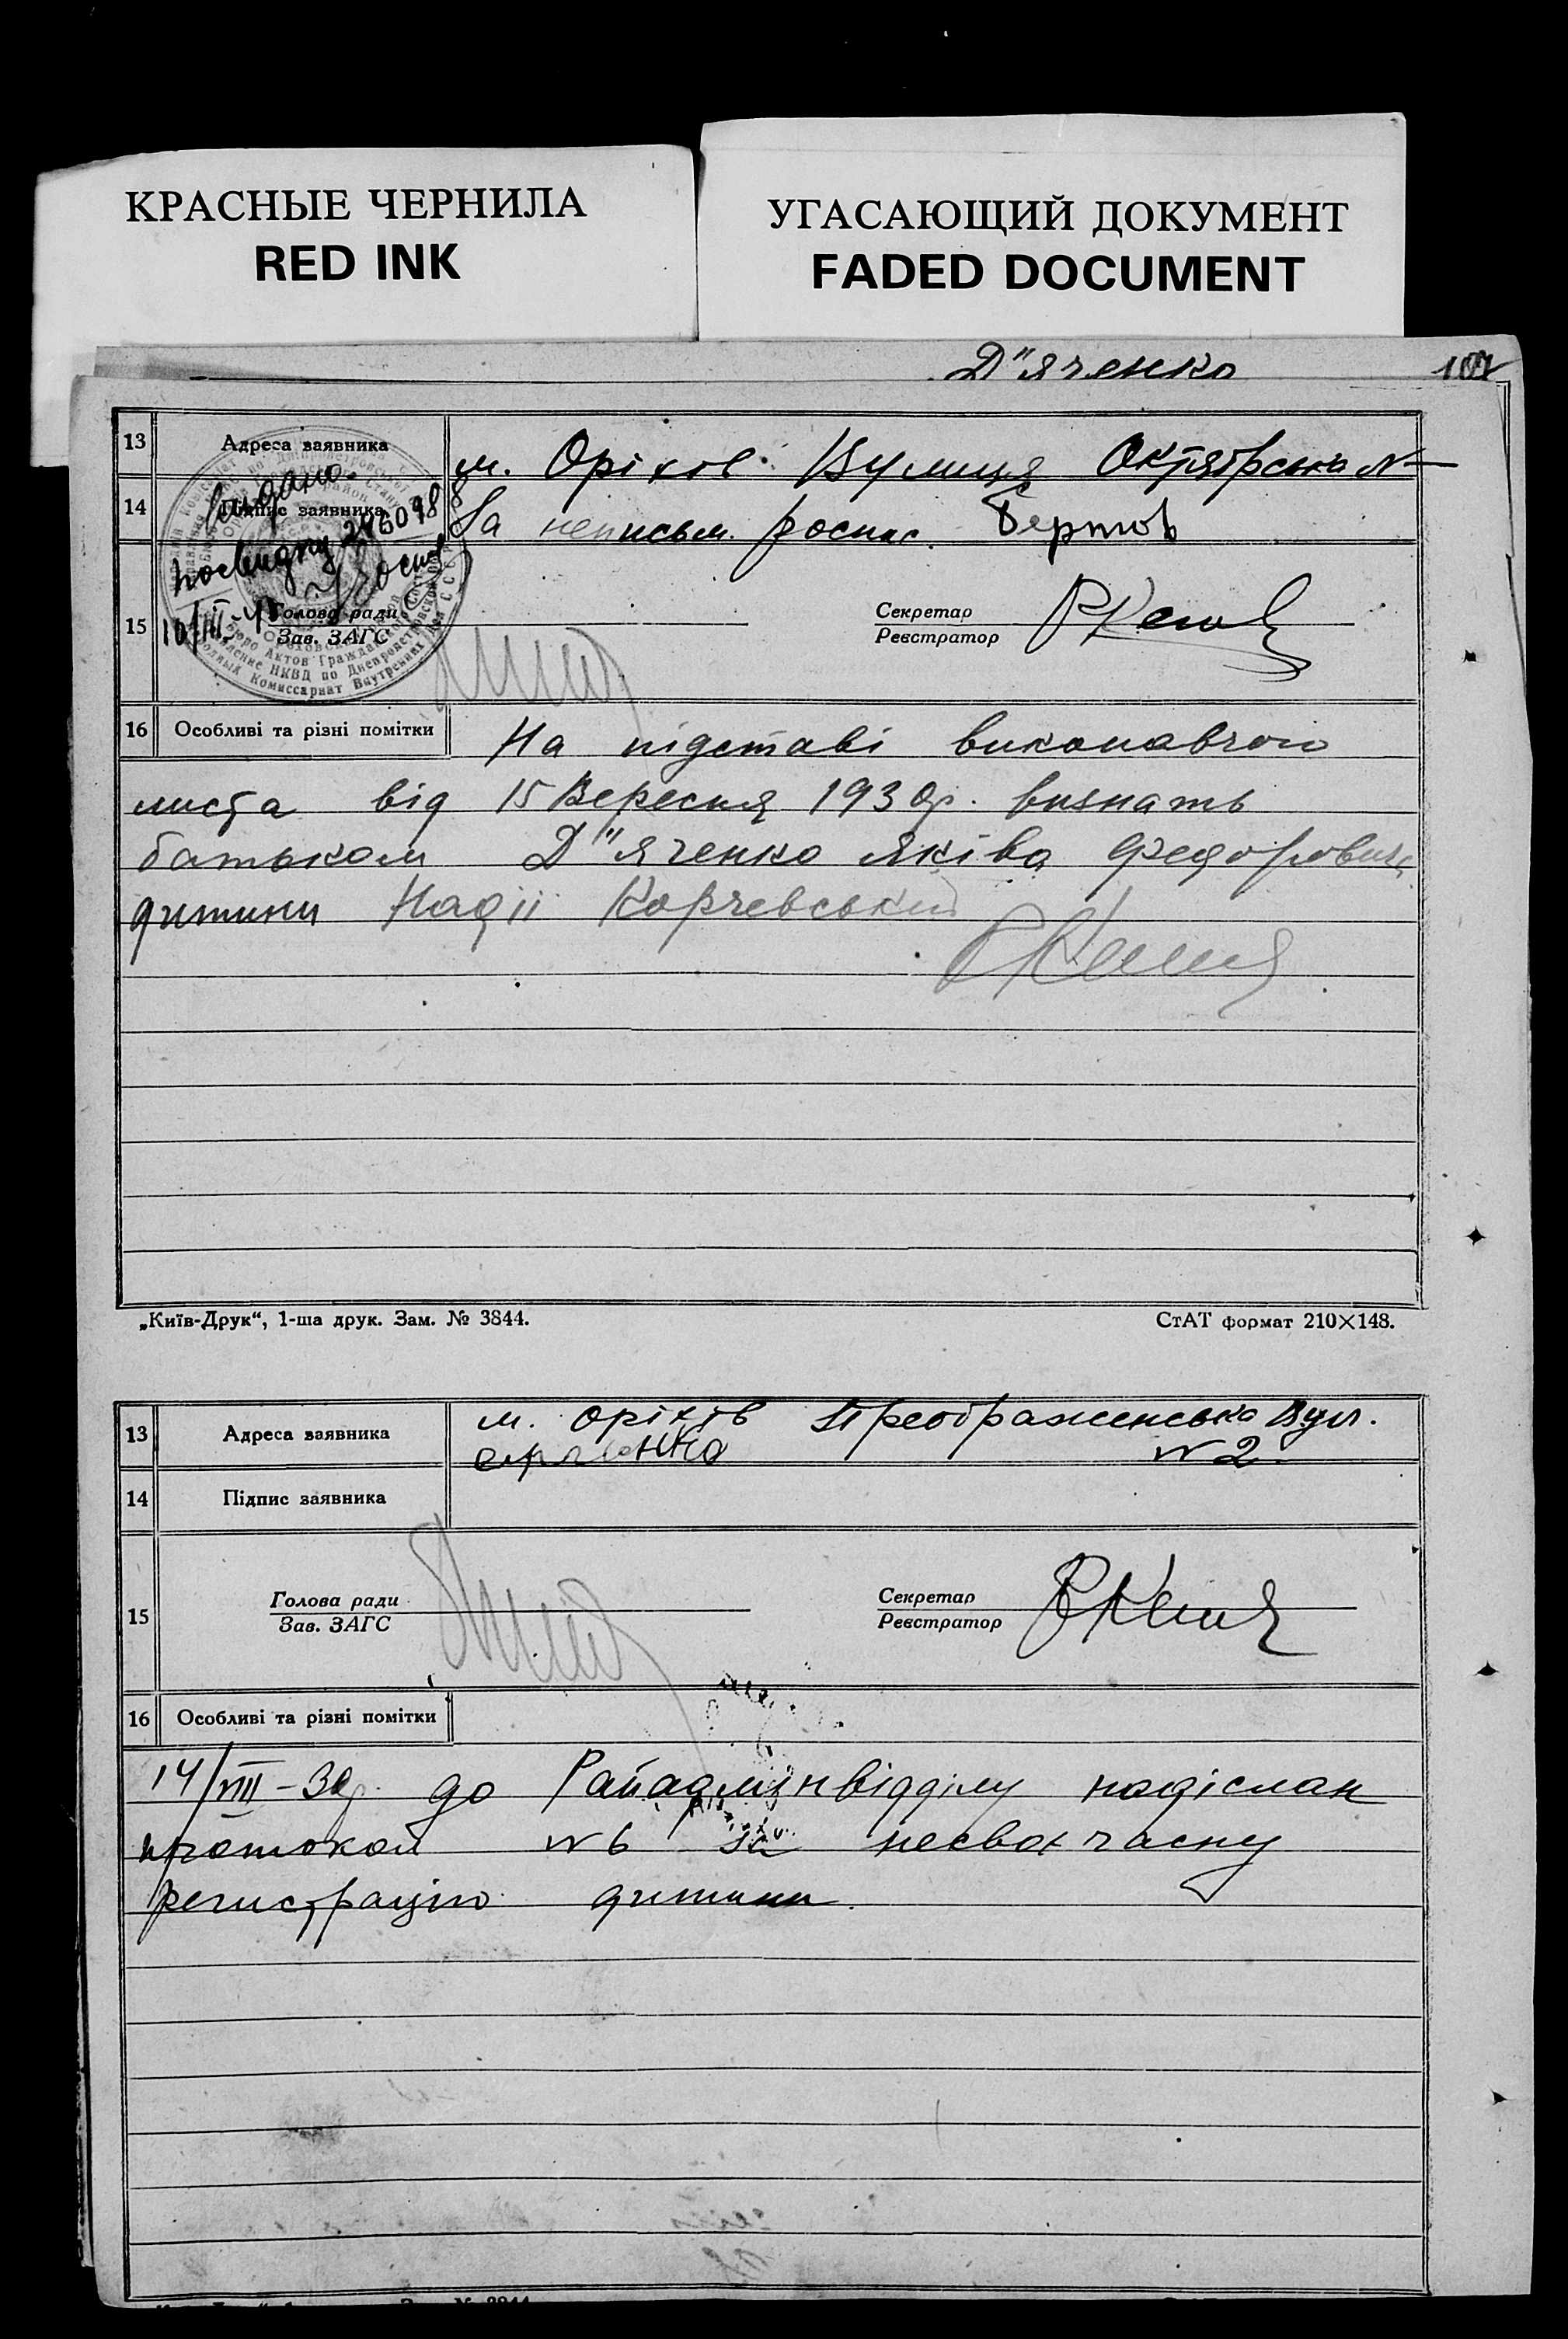 КРАСНЫЕ ЧЕРНИЛА
RED INK
УГАСАЮЩИЙ ДОКУМЕНТ
FADED DOCUMENT
Д"яченко
13 Адреса заявника м. Оріхів Вулиця Октябрська №—
14 Підпис заявника За неписьм. роспис.
Видано
посвидку 246098
15 Голова ради
Зав. ЗАГС
Секретар
Реєстратор
16 Особливі та різні помітки На підставі виконавчого
листа від 15 Вересня 1930р. визнать
батьком Д"яченко Яківа Федоровича
дитини Надії Корчевський
„Київ-Друк“, 1-ша друк. Зам. № 3844.
СтАТ формат 210×148.
13 Адреса заявника м. Оріхів Преображенська Вул.
№ 2.
14 Підпис заявника
15 Голова ради
Зав. ЗАГС
Секретар
Реєстратор
16 Особливі та різні помітки
14/VIII-30р. до Райадмінвідділу надіслан
протокол № 6 за несвоєчасну
регистрацію дитини.